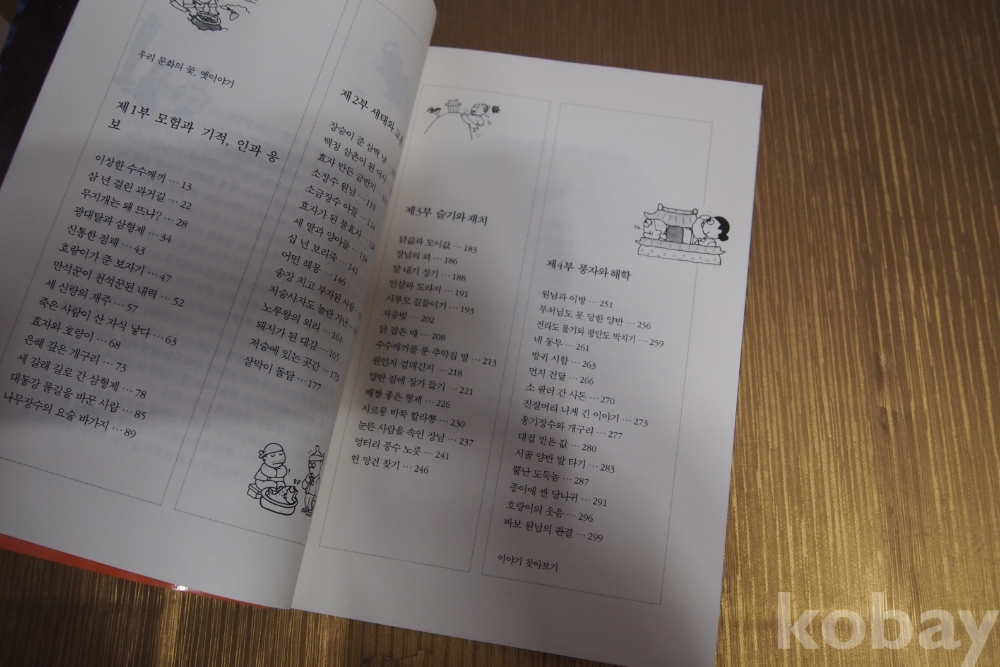 우리 문화의 꽃, 옛이야기
제1부 모험과 기적, 인과 응
보
이상한 수수께끼 … 13
삼 년 걸린 과거길 … 22
무지개는 왜 뜨나? … 28
광대탈과 삼형제 … 34
신통한 점괘 … 43
호랑이가 준 보자기 … 47
만석꾼이 천석꾼된 내력 … 52
세 신랑의 재주 … 57
죽은 사람이 산 자식 낳다 … 63
효자와 호랑이 … 68
은혜 갚은 개구리 … 73
세 갈래 길로 간 삼형제 … 78
대동강 물길을 바꾼 사람 … 85
나무장수의 요술 바가지 … 89
제2부 세태와 교
장승이 준 삼백 냥
백정 삼촌이 된
효자 만든 금반지
소장수 원님 … 119
소금장수 아들
효자가 된 불효자
세 딸과 양아들 … 134
십 년 보리죽 … 141
어떤 해몽 … 146
송장 치고 부자된 사람
저승사자도 놀란 가난
노루왕의 의리 … 161
돼지가 된 대감 … 165
저승에 있는 곳간 … 173
살막이 돌담 … 177
제3부 슬기와 재치
닭값과 모이값 … 183
장님의 꾀 … 186
말 내기 장기 … 188
인삼과 도라지 … 191
시부모 길들이기 … 193
저승빚 … 202
닭 잡은 매 … 208
수수께끼를 푼 주막집 딸 … 213
원인지 엽때긴지 … 218
양반 집에 장가 들기 … 221
배짱 좋은 형제 … 226
시르릉 비쭉 할라뿡 … 230
눈뜬 사람을 속인 장님 … 237
엉터리 풍수 노릇 … 241
헌 망건 찾기 … 246
제4부 풍자와 해학
원님과 이방 … 251
부처님도 못 당한 양반 … 256
전라도 물기와 평안도 박치기 … 259
네 동무 … 261
방귀 시합 … 263
먼지 건달 … 266
소 팔러 간 사돈 … 270
진절머리 나게 긴 이야기 … 273
옹기장수와 개구리 … 277
대접 받은 값 … 280
시골 양반 말 타기 … 283
뿔난 도둑놈 … 287
종이에 싼 당나귀 … 291
호랑이의 웃음 … 296
바보 원님의 판결 … 299
이야기 찾아보기
kobay